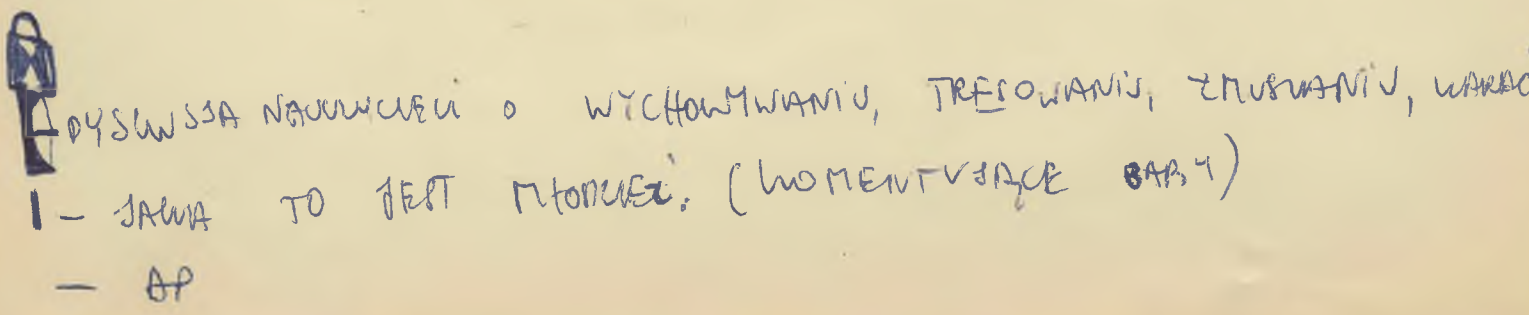 DYSKUSJA NAUCZYCIELI O WYCHOWYWANIU, TRESOWANIU, ZMUSZANIU,
- JAKA TO JEST MŁODZIEŻ. (KOMENTUJĄCE BABY)
- AP